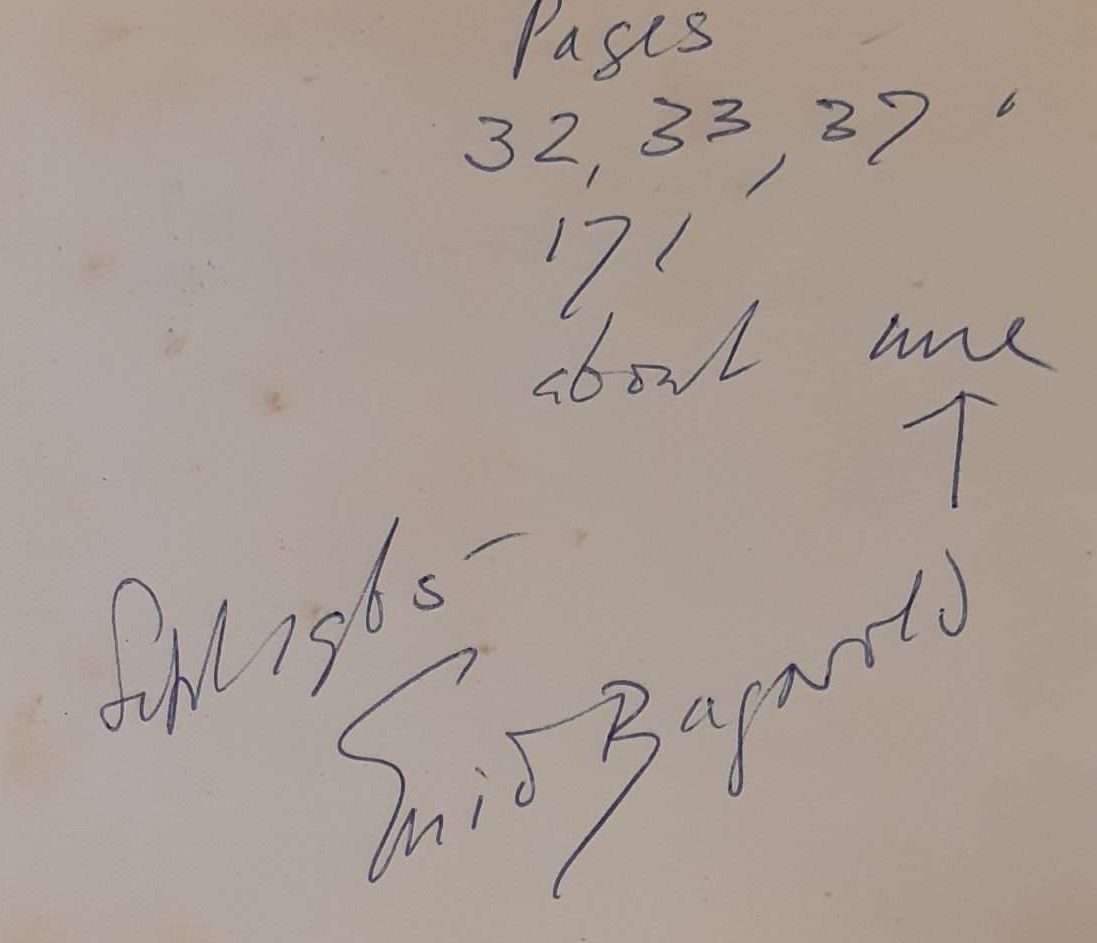 Pages
32, 33, 37,
171
about me
↑
Sept 1965 -
Enid Bagnold